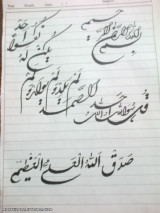 بسم الله الرحمن الرحيم
قل هو الله احد
الله الصمد
لم يلد ولم يولد
ولم
يكن له
كفوا
احد
صدق الله العلي العظيم